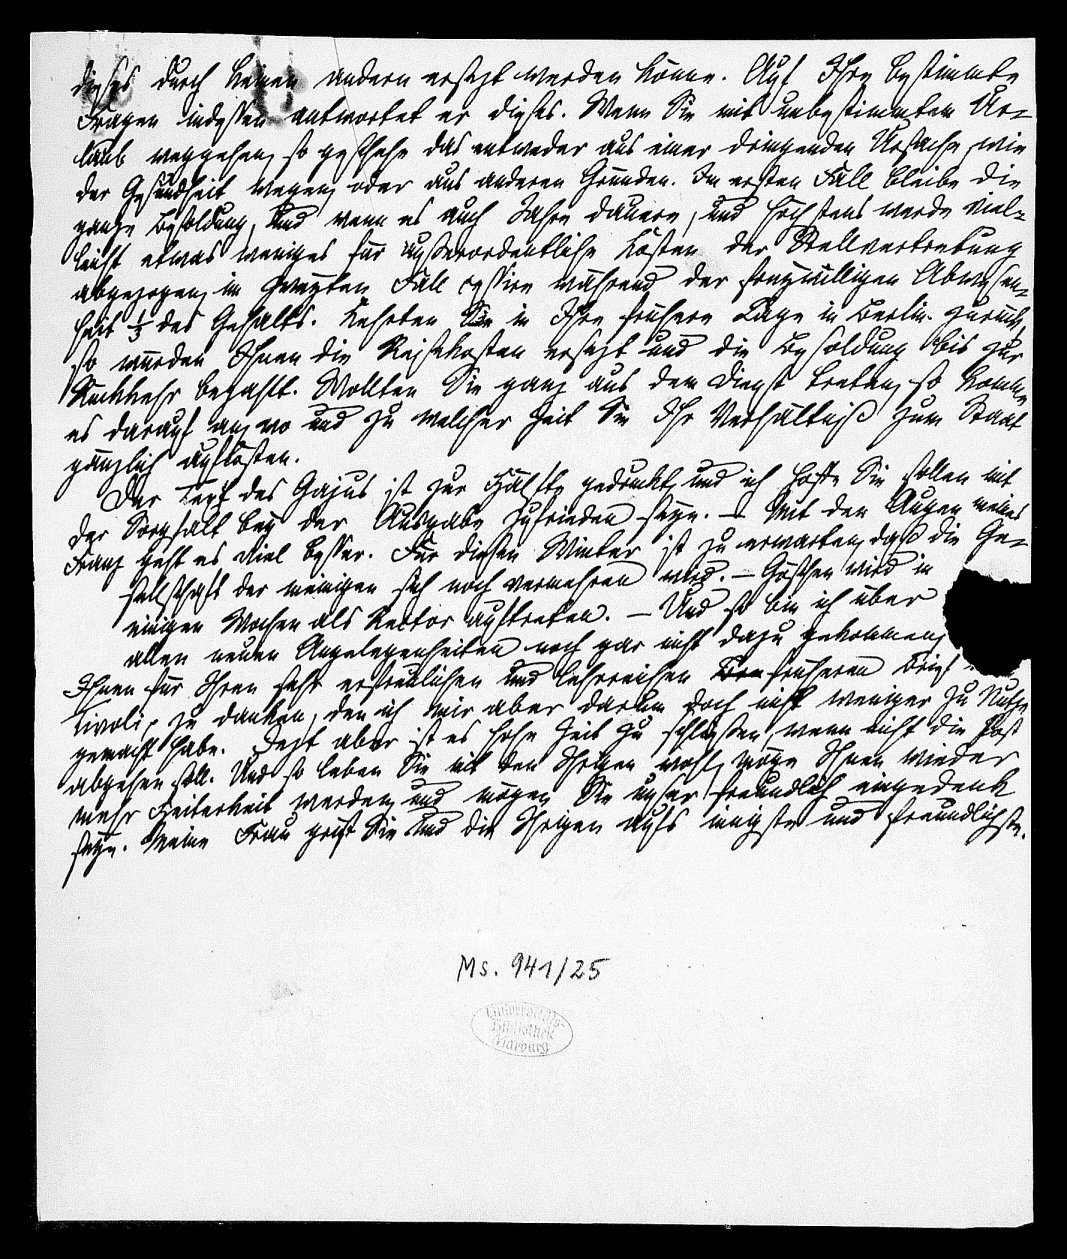 dieses durch keinen andern ersezt werden könne. Auf Ihre bestimmte
Fragen indessen antwortet er dieses. Wenn Sie mit unbestimmtem Ur-
laub weggehen, so geschehe das entweder aus einer dringenden Ursache, wie
der Gesundheit wegen, oder aus anderen Gründen. Im ersten Fall bleibe die
ganze Besoldung, und wenn es auch Jahre dauere, und höchstens werde viel-
leicht etwas weniges für außerordentliche Kosten der Stellvertretung
abgezogen, im zweyten Fall cessire während der freywilligen Abwesen-
heit ⅓ des Gehalts. Kehrten Sie in Ihre frühere Lage in Berlin zurück,
so würden Ihnen die Reisekosten ersezt und die Besoldung bis zur
Rückkehr bezahlt. Wollten Sie ganz aus dem Dienst treten, so komme
es darauf an, wo und zu welcher Zeit Sie Ihr Verhältniß zum Staat
gänzlich auflösten.
Der Text des Gajus ist zur Hälfte gedruckt, und ich hoffe Sie sollen mit
der Sorgfalt bey der Ausgabe zufrieden seyn. – Mit den Augen meines
Franz geht es viel besser. Für diesen Winter ist zu erwarten, daß die Ge-
sellschaft der meinigen sich noch vermehren wird. – Göschen wird in
einigen Wochen als Rector auftreten. – Und so bin ich über
allen neuen Angelegenheiten noch gar nicht dazu gekommen,
Ihnen für Ihren sehr erfreulichen und lehrreichen früheren Brief
Tivoli, zu danken, den ich mir aber darum doch nicht weniger zu Nutze
gemacht habe. Jezt aber ist es hohe Zeit zu schließen, wenn nicht die Post
abgehen soll. Und so leben Sie mit den Ihrigen wohl, möge Ihnen wieder
mehr Heiterkeit werden, und mögen Sie unser freundlich eingedenk
seyn. Meine Frau grüßt Sie und die Ihrigen aufs innigste und freundlichste.
Ms. 941/25
Universitäts-
Bibliothek
Marburg